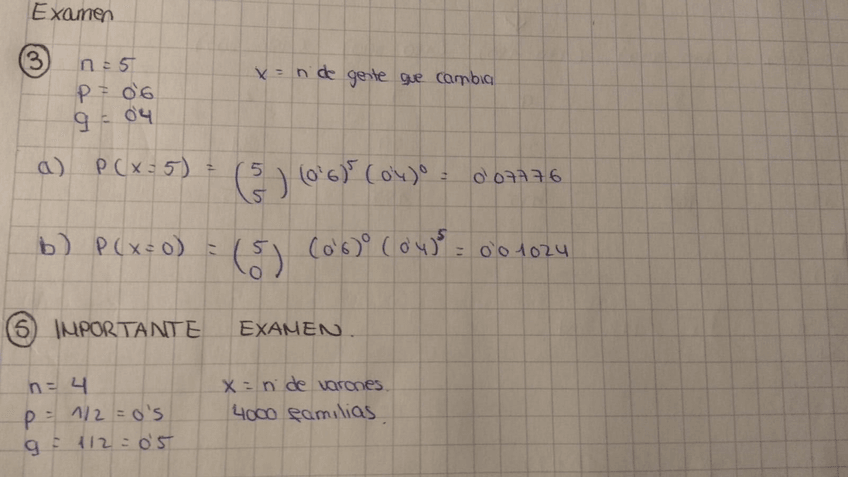 Examen
③ n = 5 x = nº de gente que cambia
p = 0'6
q = 0'4
a) P(x=5) = (5 5) (0'6)⁵ (0'4)⁰ = 0'07776
b) P(x=0) = (5 0) (0'6)⁰ (0'4)⁵ = 0'01024
⑤ IMPORTANTE EXAMEN.
n = 4 x = nº de varones.
p = 1/2 = 0'5 4000 familias.
q = 1/2 = 0'5